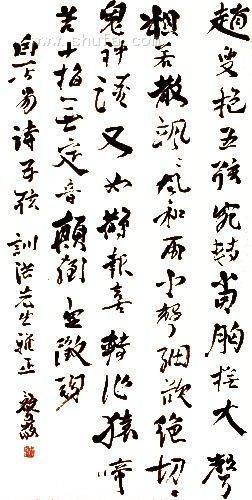 趙叟抱五弦宛轉當胸撫大聲
粗若散颯〻風和雨小聲細欲絕切〻
鬼神語又如鵲報喜轉作猿啼
苦十指無定音顛倒宮徵羽
白居易詩五弦 訓浩先生雅正